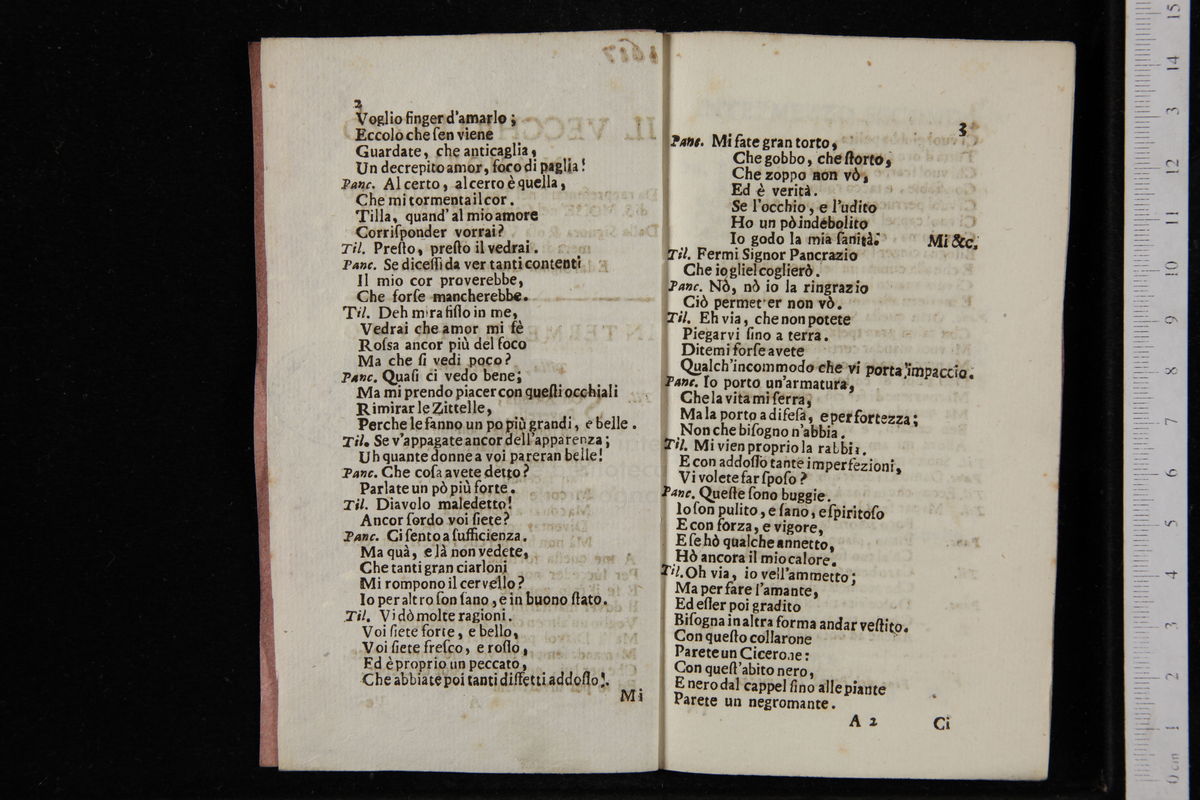 2
Voglio finger d'amarlo ;
Eccolo che ſen viene
Guardate, che anticaglia,
Un decrepito amor, foco di paglia!
Panc. Al certo, al certo è quella,
Che mi tormenta il cor.
Tilla, quand' al mio amore
Corriſponder vorrai?
Til. Preſto, preſto il vedrai.
Panc. Se diceſſi da ver tanti contenti
Il mio cor proverebbe,
Che forſe mancherebbe.
Til. Deh mira fiſſo in me,
Vedrai che amor mi fè
Roſsa ancor più del foco
Ma che ſi vedi poco?
Panc. Quaſi ci vedo bene;
Ma mi prendo piacer con queſti occhiali
Rimirar le Zittelle,
Perche le fanno un po più grandi, e belle.
Til. Se v'appagate ancor dell'apparenza;
Uh quante donne a voi pareran belle!
Panc. Che coſa avete detto?
Parlate un pò più forte.
Til. Diavolo maledetto!
Ancor ſordo voi ſiete?
Panc. Ci ſento a ſufficienza.
Ma quà, e là non vedete,
Che tanti gran ciarloni
Mi rompono il cervello?
Io per altro ſon ſano, e in buono ſtato.
Til. Vi dò molte ragioni.
Voi ſiete forte, e bello,
Voi ſiete freſco, e roſſo,
Ed è proprio un peccato,
Che abbiate poi tanti diffetti addoſſo!.
Mi
3
Panc. Mi fate gran torto,
Che gobbo, che ſtorto,
Che zoppo non vò,
Ed è verità.
Se l'occhio, e l'udito
Ho un pò indebolito
Io godo la mia ſanità. Mi &c.
Til. Fermi Signor Pancrazio
Che io gliel coglierò.
Panc. Nò, nò io la ringrazio
Ciò permetter non vò.
Til. Eh via, che non potete
Piegarvi ſino a terra.
Ditemi forſe avete
Qualch'incommodo che vi porta impaccio.
Panc. Io porto un'armatura,
Che la vita mi ſerra,
Ma la porto a difeſa, e per fortezza;
Non che biſogno n'abbia.
Til. Mi vien proprio la rabbia.
E con addoſſo tante imperfezioni,
Vi volete far ſpoſo?
Panc. Queſte ſono buggie.
Io ſon pulito, e ſano, e ſpiritoſo
E con forza, e vigore,
E ſe hò qualche annetto,
Hò ancora il mio calore.
Til. Oh via, io vell'ammetto;
Ma per fare l'amante,
Ed eſſer poi gradito
Biſogna in altra forma andar veſtito.
Con queſto collarone
Parete un Cicerone:
Con queſt'abito nero,
E nero dal cappel ſino alle piante
Parete un negromante.
A 2 Ci